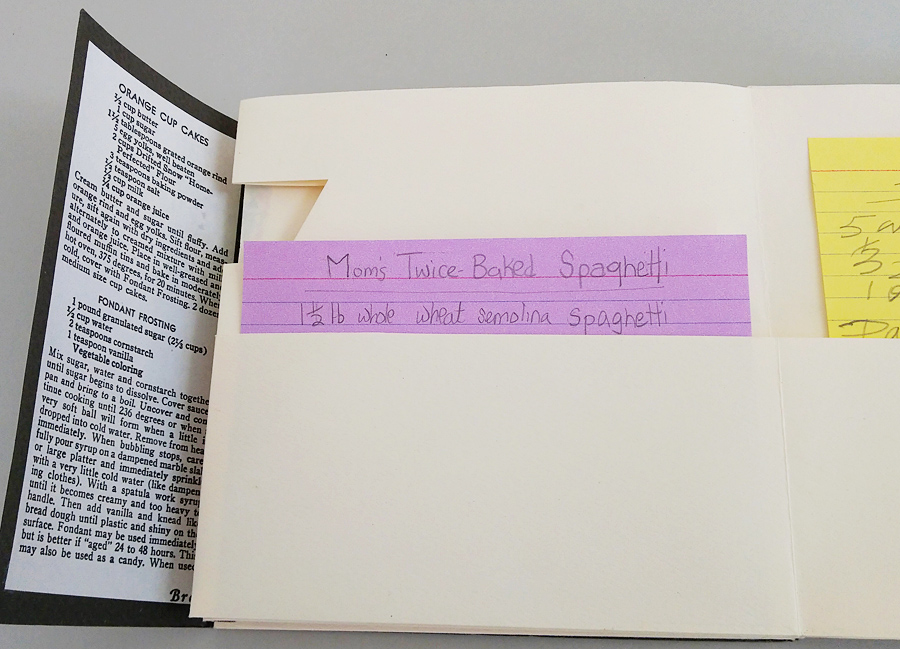 ORANGE CUP CAKES
½ cup butter
1 cup sugar
1½ tablespoons grated orange rind
5 egg yolks, well beaten
2 cups Drifted Snow "Home-
Perfected" Flour
3 teaspoons baking powder
½ teaspoon salt
cup milk
cup orange juice
Cream butter and sugar until fluffy. Add
orange rind and egg yolks. Sift flour,
ure, sift again with dry ingredients and
alternately to creamed mixture with
and orange juice. Place in well-greased and
floured muffin tins and bake in moderately
hot oven, 375 degrees, for 20 minutes. When
cold, cover with Fondant Frosting. 2 dozen
medium size cup cakes.
FONDANT FROSTING
1 pound granulated sugar (2½ cups)
½ cup water
2 teaspoons cornstarch
1 teaspoon vanilla
Vegetable coloring
Mix sugar, water and cornstarch
until sugar begins to dissolve. Cover
pan and bring to a boil. Uncover and
tinue cooking until 236 degrees or when
very soft ball will form when a little
dropped into cold water. Remove from
immediately. When bubbling stops,
fully pour syrup on a dampened marble
or large platter and immediately
with a very little cold water (like
ing clothes). With a spatula work
until it becomes creamy and too heavy
handle. Then add vanilla and knead
bread dough until plastic and shiny on
surface. Fondant may be used immediately
but is better if "aged" 24 to 48 hours.
may also be used as a candy. When used
Mom's Twice-Baked Spaghetti
1½ lb whole wheat semolina Spaghetti
5
⅓
1